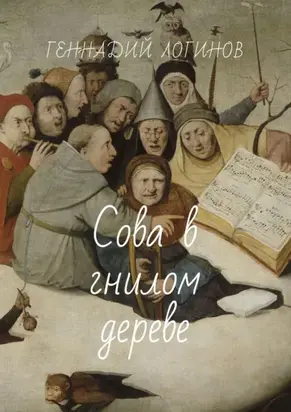 ГЕННАДИЙ ЛОГИНОВ
Сова в
гнилом
дереве